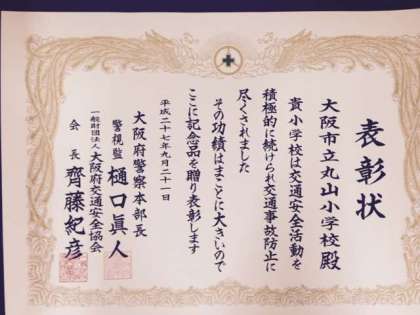 表彰状
大阪市立丸山小学校殿
貴小学校は交通安全活動を
積極的に続けられ交通事故防止に
尽くされました
その功績はまことに大きいので
ここに記念品を贈り表彰します
平成二十七年九月二十一日
大阪府警察本部長
警視監 樋口眞人
一般財団法人大阪府交通安全協会
会長 齊藤紀彦